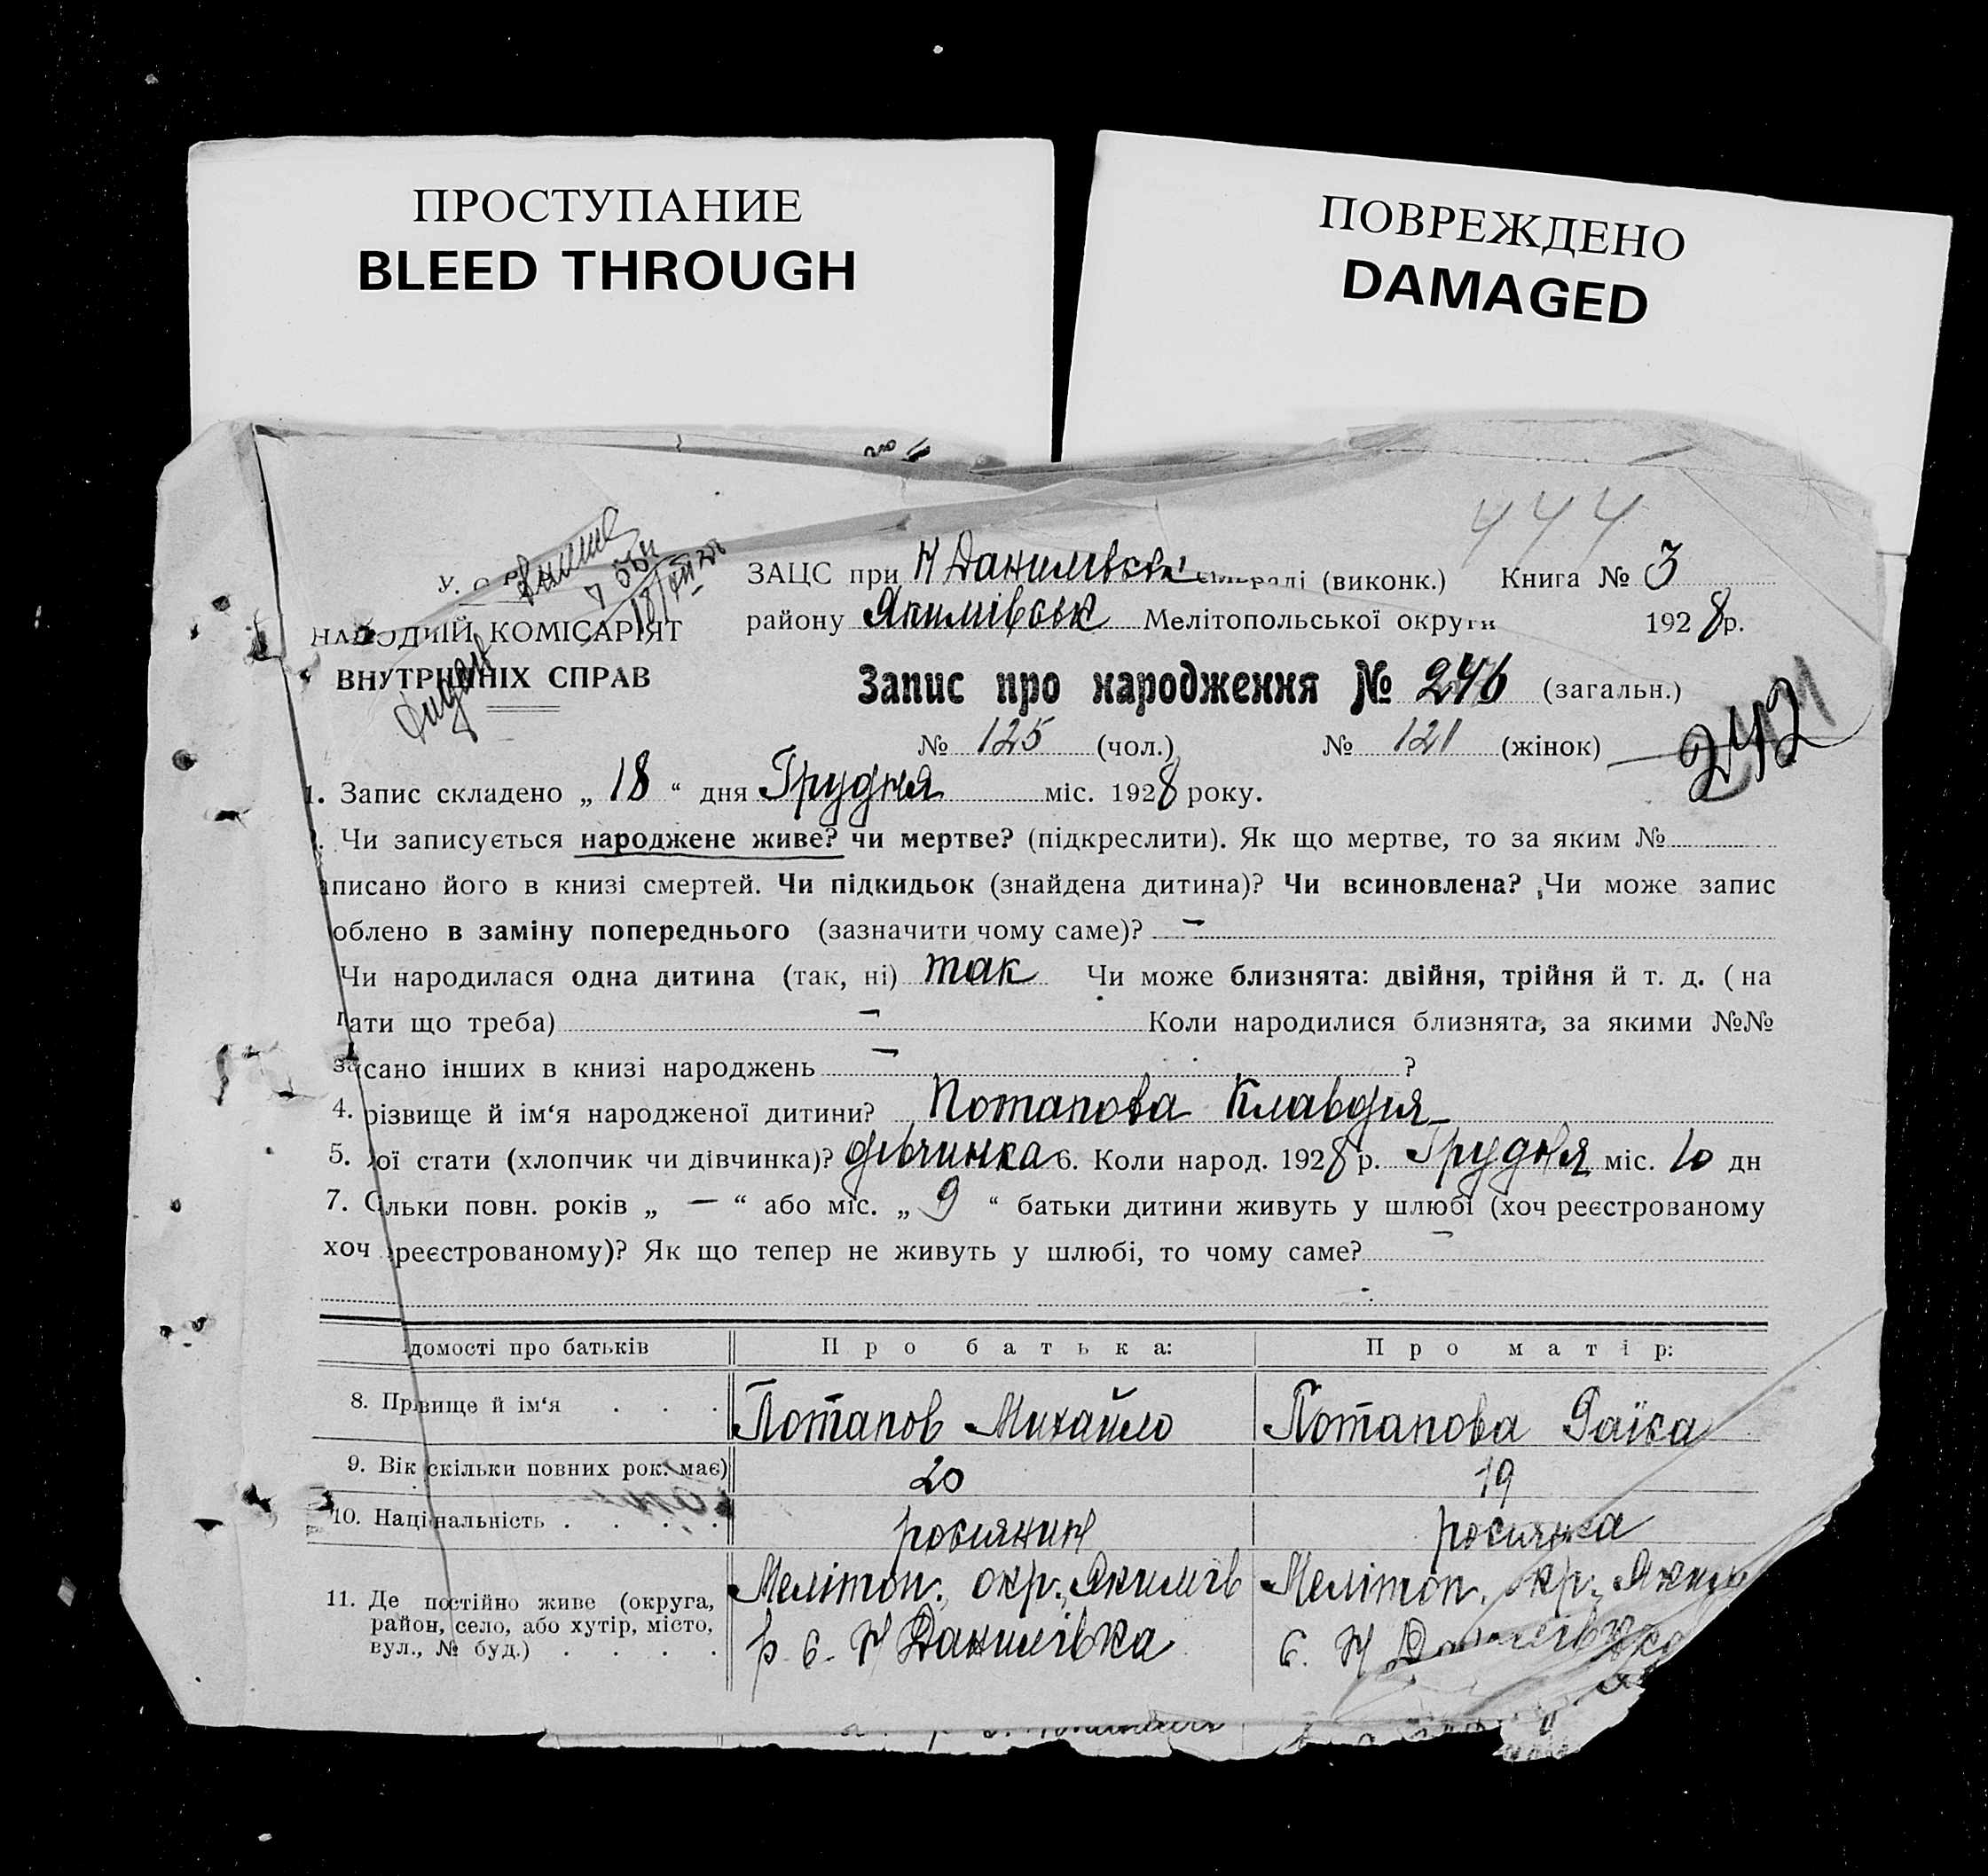 ПРОСТУПАНИЕ
BLEED THROUGH
ПОВРЕЖДЕНО
DAMAGED
444
У. С. Р. Р.
ЗАЦС при Н Данилівськ сільраді (виконк.) Книга № 3
НАРОДНІЙ КОМІСАРІЯТ
району Якимівськ Мелітопольської округи 1928 р.
ВНУТРІШНІХ СПРАВ
Запис про народження № 246 (загальн.)
242
№ 125 (чол.) № 121 (жінок)
1. Запис складено „ 18 “ дня Грудня міс. 1928 року.
Чи записується народжене живе? чи мертве? (підкреслити). Як що мертве, то за яким №
аписано його в книзі смертей. Чи підкидьок (знайдена дитина)? Чи всиновлена? Чи може запис
облено в заміну попереднього (зазначити чому саме)? –
Чи народилася одна дитина (так, ні) так Чи може близнята: двійня, трійня й т. д. (на
ати що треба) – Коли народилися близнята, за якими №№
за сано інших в книзі народжень – ?
4. різвище й ім‘я народженої дитини? Потапова Клавдія
5. ої стати (хлопчик чи дівчинка)? дівчинка 6. Коли народ. 1928 р. Грудня міс. 10 дн
7. С льки повн. років „ — “ або міс. „ 9 “ батьки дитини живуть у шлюбі (хоч реєстрованому
хоч реєстрованому)? Як що тепер не живуть у шлюбі, то чому саме? –
домості про батьків Про батька: Про матір:
8. Прізвище й ім‘я . . . Потапов Михайло Потапова Раїса
9. Вік скільки повних рок. має) 20 19
10. Національність . . . . росиянин росиянка
11. Де постійно живе (округа, район, село, або хутір, місто, вул., № буд.) . . . .
Мелітоп. окр., Якимів
р. с. Н Данилівка
Мелітоп. окр., Яким
с. Н Данилівка